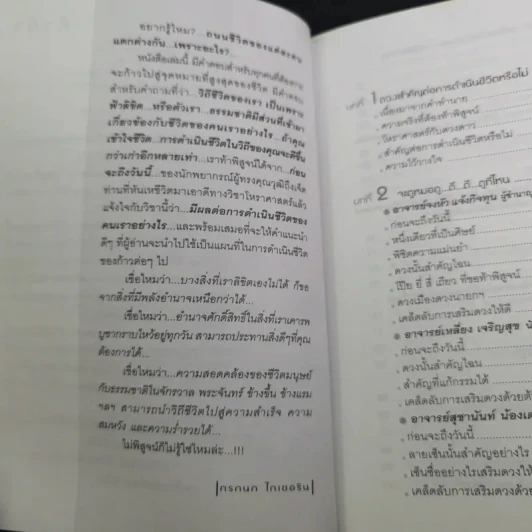 อยากรู้ไหม?...ถนนชีวิตของแต่ละคน
แตกต่างกัน...เพราะอะไร?...
หนังสือเล่มนี้ มีคำตอบสำหรับทุกคนที่ต้องการ
จะก้าวไปสู่จุดหมายที่สูงสุดของชีวิต มีคำตอบ
สำหรับคำถามที่ว่า...วิถีชีวิตของเรา เป็นเพราะ
ฟ้าลิขิต...หรือตัวเรา...ธรรมชาติมีส่วนที่เข้ามา
เกี่ยวข้องกับชีวิตของคนเราอย่างไร...ถ้าคุณ
เข้าใจชีวิต...การดำเนินชีวิตในวิถีของคุณจะดีขึ้น
กว่าเก่าอีกหลายเท่า...เราท้าพิสูจน์ได้จาก...ก่อน
จะถึงวันนี้...ของนักพยากรณ์ผู้ทรงคุณวุฒิถึงเจ็ด
ท่านที่หันเหชีวิตมาเอาดีทางวิชาโหราศาสตร์แล้ว
แจ้งใจกับวิชานี้ว่า...มีผลต่อการดำเนินชีวิตของ
คนเราอย่างไร...และพร้อมเสมอที่จะให้คำแนะนำ
ดีๆ ที่ผู้อ่านจะนำไปใช้เป็นแผนที่ในการดำเนินชีวิต
ของก้าวต่อๆ ไป
เชื่อไหมว่า...บางสิ่งที่เราลิขิตเองไม่ได้ ก็ขอ
จากสิ่งที่มีพลังอำนาจเหนือกว่าได้...
เชื่อไหมว่า...อำนาจศักดิ์สิทธิ์ในสิ่งที่เราเคารพ
บูชากราบไหว้อยู่ทุกวัน สามารถประทานสิ่งดีๆที่คุณ
ต้องการได้...
เชื่อไหมว่า...ความสอดคล้องของชีวิตมนุษย์
กับธรรมชาติในจักรวาล พระจันทร์ ข้างขึ้น ข้างแรม
ฯลฯ สามารถนำวิถีชีวิตไปสู่ความสำเร็จ ความ
สมหวัง และความร่ำรวยได้...
ไม่พิสูจน์ก็ไม่รู้ใช่ไหมล่ะ...!!!
กรกนก ไกเซอริน
บทที่ 1 ดวงสำคัญต่อการดำเนินชีวิตหรือไม่
เนื่องมาจากคำทำนาย
ความจริงที่ต้องพิสูจน์
โหราศาสตร์กับดวงดาว
สำคัญต่อการดำเนินชีวิตหรือไม่
ความไว้วางใจ
บทที่ 2 จะหาหมอดู...ดี...ดี...ดูที่ไหน
อาจารย์จงหัว แจ้งกิจทุน ผู้ชำนาญ
ก่อนจะถึงวันนี้
หนึ่งเดียวที่เป็นศิษย์
พิชิตความแม่นยำ
ดวงนั้นสำคัญไฉน
โป๊ย ยี่ สี่ เถียว ที่ขอท้าพิสูจน์
ดวงเมืองดวงนายกฯ
เคล็ดลับการเสริมดวงให้ดี
อาจารย์เหลี่ยง เจริญสุข
ก่อนจะถึงวันนี้
ดวงนั้นสำคัญไฉน
สำคัญที่แก้กรรมได้
เคล็ดลับการเสริมดวงด้วยตัว
อาจารย์สุชานันท์ น้องเด
ก่อนจะถึงวันนี้
ลายเซ็นนั้นสำคัญอย่างไร
เซ็นชื่ออย่างไรเสริมดวงให้
เคล็ดลับการเสริมดวงด้วย